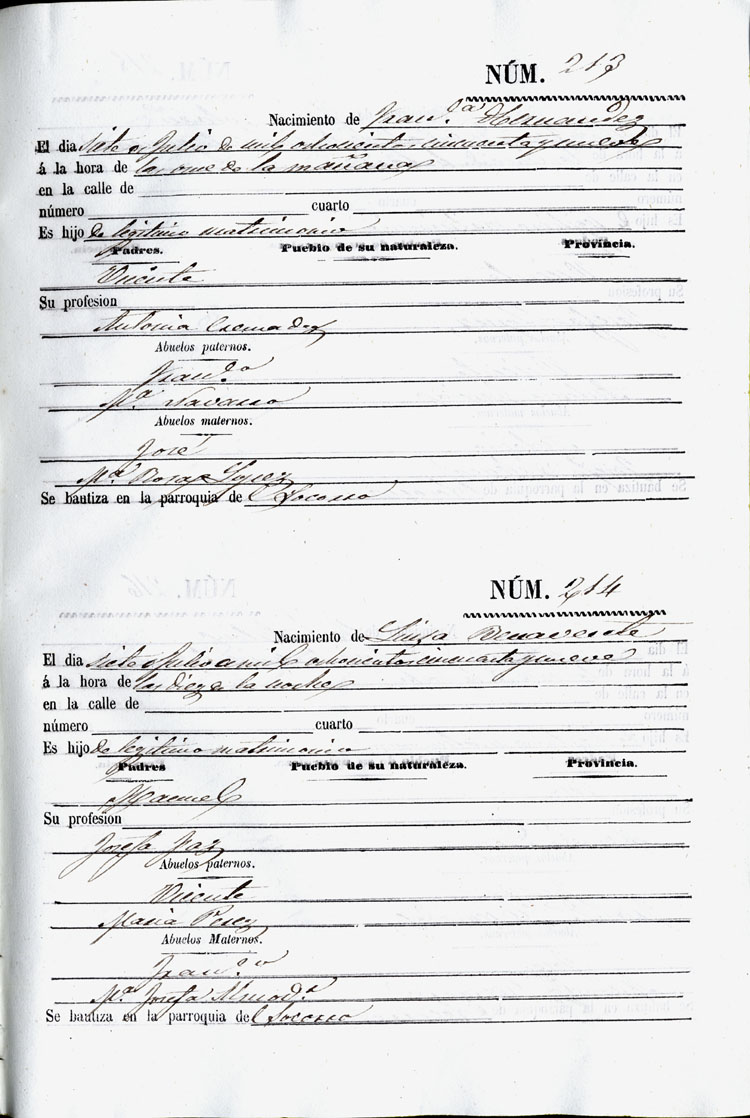 NÚM. 213
Nacimiento de Fran.ca Hernandez
El dia siete de Julio de mil ochocientos cincuenta y nueve
á la hora de las once de la mañana
en la calle de
número cuarto
Es hijo de legitimo matrimonio
Padres. Pueblo de su naturaleza. Provincia.
Vicente
Su profesion
Antonia
Abuelos paternos.
Fran.co
M.a Navarro
Abuelos maternos.
José
M.a Rosa Lopez
Se bautiza en la parroquia del Socorro
NÚM. 214
Nacimiento de Luisa Benavente
El dia siete Julio de mil ochocientos cincuenta y nueve
á la hora de las diez de la noche
en la calle de
número cuarto
Es hijo de legitimo matrimonio
Padres Pueblo de su naturaleza. Provincia.
Manuel
Su profesion
Josefa Paz
Abuelos paternos.
Vicente
Maria Perez
Abuelos Maternos.
Fran.co
M.a Josefa
Se bautiza en la parroquia del Socorro